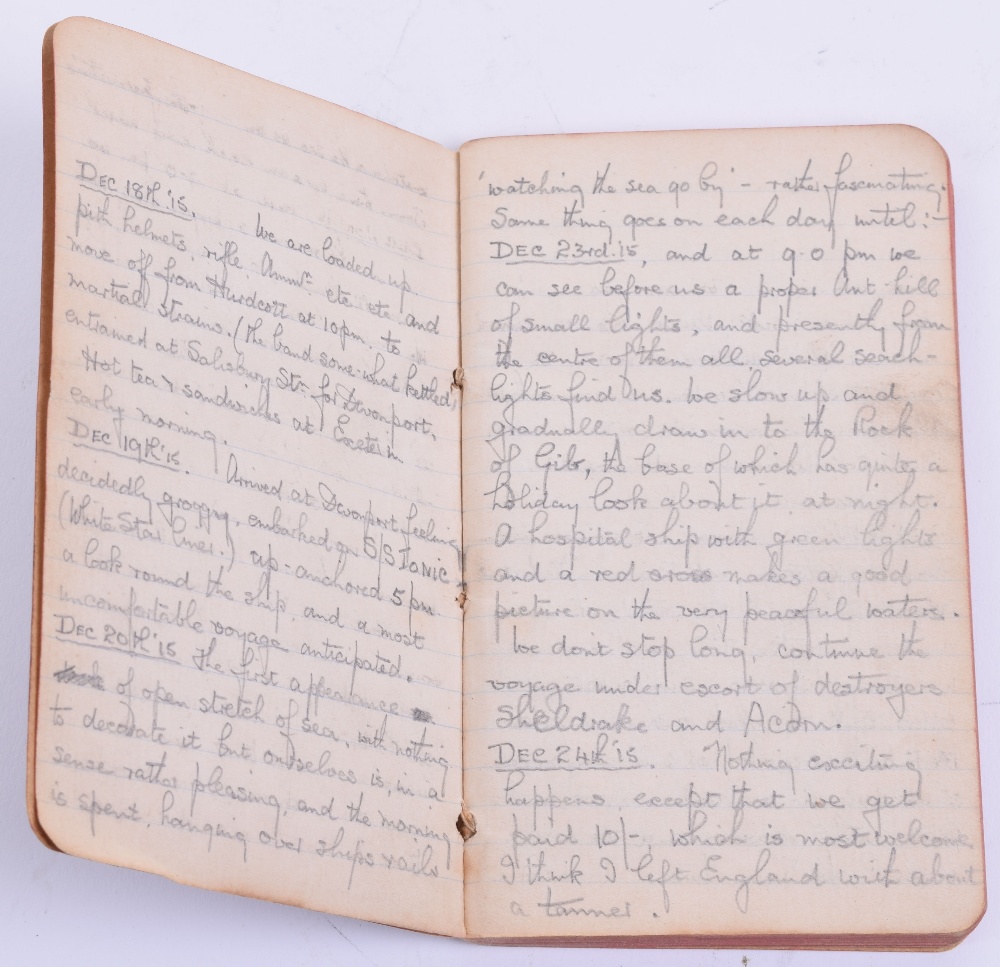 DEC 18th '15. We are loaded up
pith helmets, rifle, Ammn. etc etc and
move off from Hurdcott at 10pm. to
martial strains. (The band some-what kettled)
entrained at Salisbury Stn. for Devonport.
Hot tea & sandwiches at Exeter in
early morning.
DEC 19th '15. Arrived at Devonport feeling
decidedly groggy, embarked on S/S IONIC
(White Star liner.) up-anchored 5 pm.
a look round the ship and a most
uncomfortable voyage anticipated.
DEC 20th '15 The first appearance
of open stretch of sea, with nothing
to decorate it but ourselves is, in a
sense rather pleasing, and the morning
is spent, hanging over ships rails
'watching the sea go by' - rather fascinating.
Same thing goes on each day until:-
DEC 23rd. 15, and at 9.0 pm we
can see before us a proper Ant-hill
of small lights, and presently from
the centre of them all, several seach-
lights find us. We slow up and
gradually draw in to the Rock
of Gib, the base of which has quite a
holiday look about it, at night.
A hospital ship with green lights
and a red cross makes a good
picture on the very peaceful waters.
We don't stop long, continue the
voyage under escort of destroyers
Sheldrake and Acorn.
DEC 24th '15. Nothing exciting
happens except that we get
paid 10/- which is most welcome
I think I left England with about
a tanner.